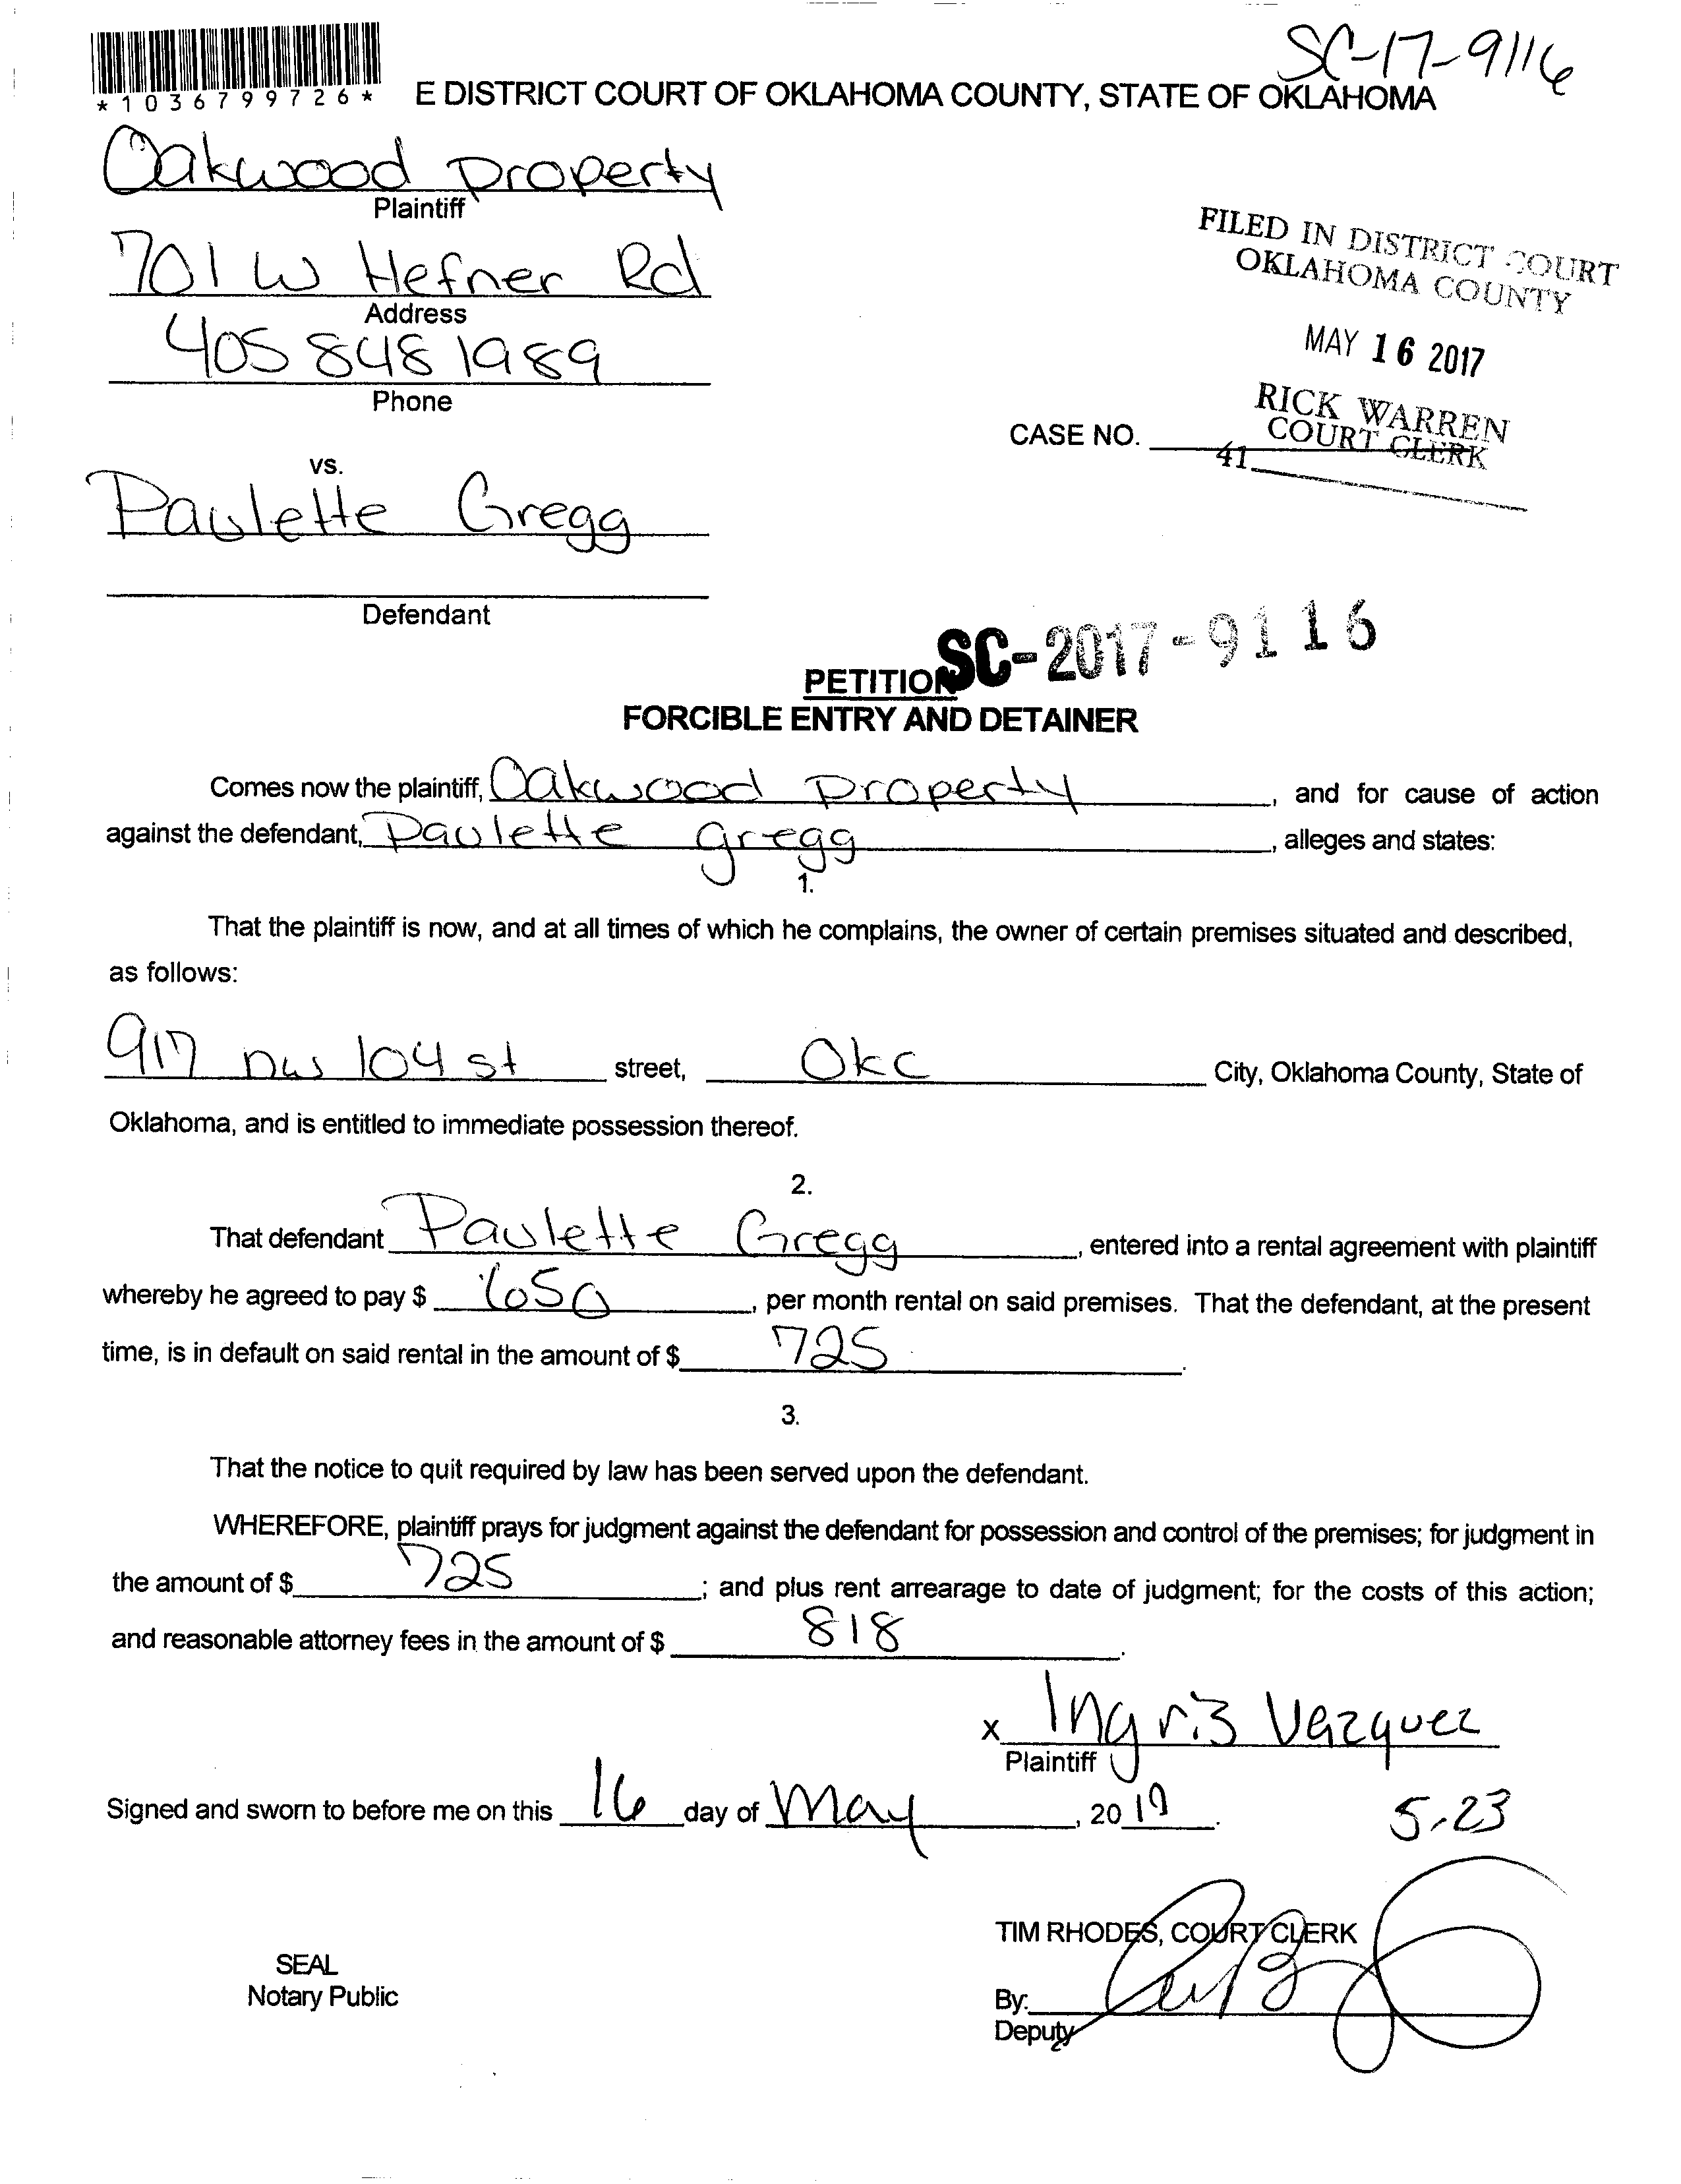 SC-17-9116
*1036799726*
E DISTRICT COURT OF OKLAHOMA COUNTY, STATE OF OKLAHOMA
Oakwood property
Plaintiff
701 W Hefner Rd
Address
405 848 1989
Phone
FILED IN DISTRICT COURT
OKLAHOMA COUNTY
MAY 16 2017
RICK WARREN
COURT CLERK
41
CASE NO.
vs.
Paulette Gregg
Defendant
SC-2017-9116
PETITION
FORCIBLE ENTRY AND DETAINER
Comes now the plaintiff, Oakwood property, and for cause of action
against the defendant, Paulette gregg, alleges and states:
1.
That the plaintiff is now, and at all times of which he complains, the owner of certain premises situated and described,
as follows:
917 nw 104 st street, Okc City, Oklahoma County, State of
Oklahoma, and is entitled to immediate possession thereof.
2.
That defendant Paulette Gregg, entered into a rental agreement with plaintiff
whereby he agreed to pay $ 650, per month rental on said premises. That the defendant, at the present
time, is in default on said rental in the amount of $ 725.
3.
That the notice to quit required by law has been served upon the defendant.
WHEREFORE, plaintiff prays for judgment against the defendant for possession and control of the premises; for judgment in
the amount of $ 725; and plus rent arrearage to date of judgment; for the costs of this action;
and reasonable attorney fees in the amount of $ 818.
x Ingris Vazquez
Plaintiff
Signed and sworn to before me on this 16 day of May, 2017.
5-23
TIM RHODES, COURT CLERK
SEAL
Notary Public
By:
Deputy